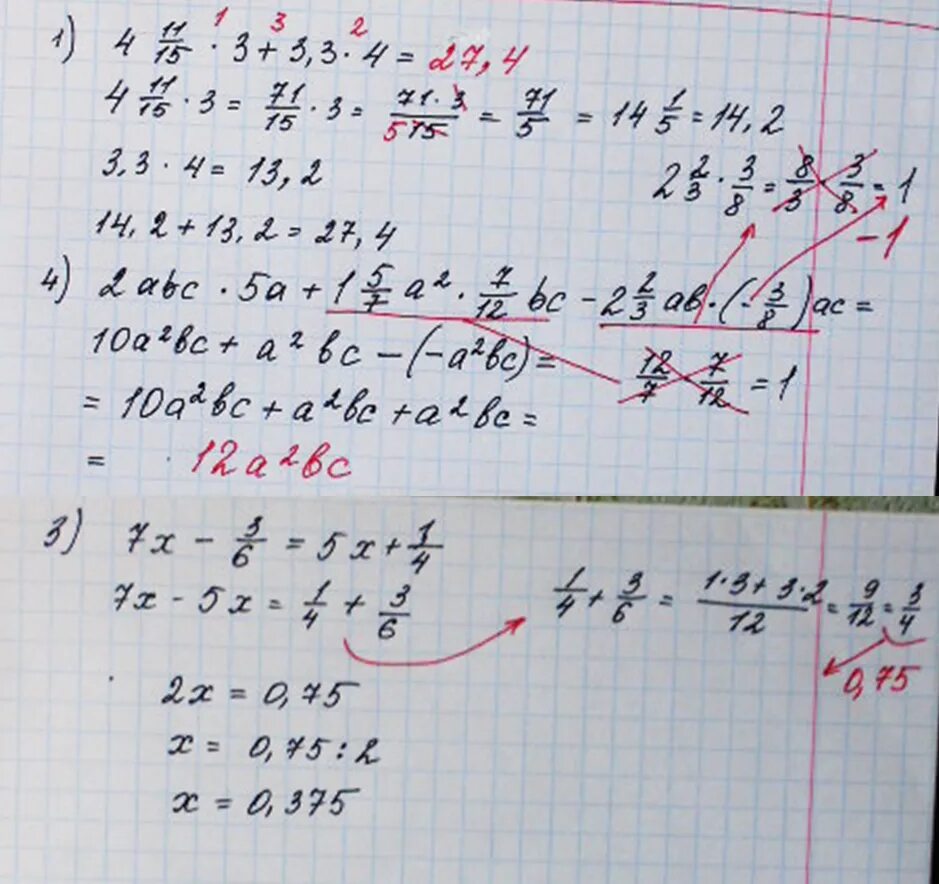 1) 4 11/15 · 3 + 3,3 · 4 = 27,4
1 3 2
4 11/15 · 3 = 71/15 · 3 = 71·3/15 = 71/5 = 14 1/5 = 14,2
1 5
3,3 · 4 = 13,2
2 2/3 · 3/8 = 8/3 · 3/8 = 1
-1
14,2 + 13,2 = 27,4
4) 2abc · 5a + 1 5/7 a² · 7/12 bc - 2 2/3 ab · (-3/8) ac =
10a²bc + a²bc - (-a²bc) =
12/7 · 7/12 = 1
= 10a²bc + a²bc + a²bc =
= 12a²bc
3) 7x - 3/6 = 5x + 1/4
7x - 5x = 1/4 + 3/6
1/4 + 3/6 = 1·3+3·2/12 = 9/12 = 3/4
0,75
2x = 0,75
x = 0,75 : 2
x = 0,375